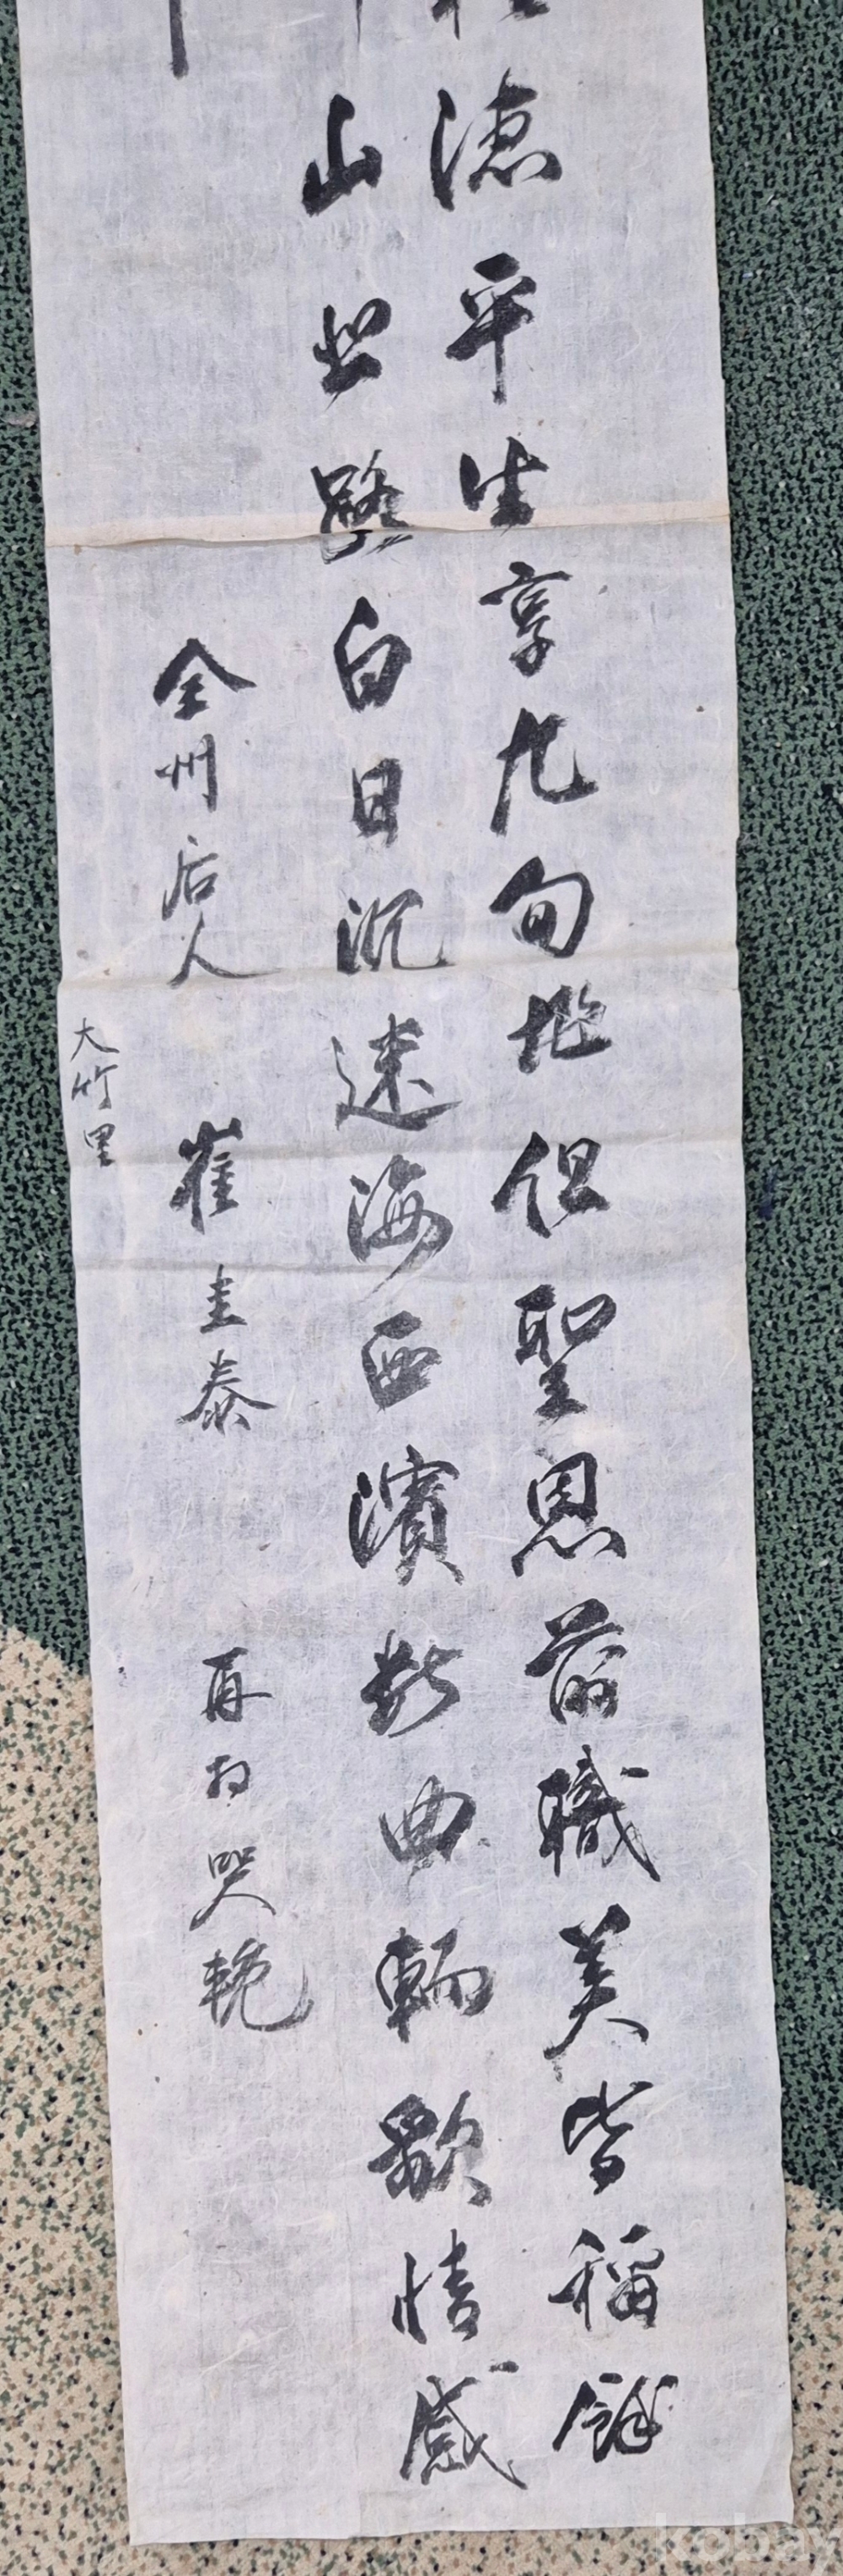 德平生享九旬地但聖恩前職美皆稱餘
山出路白日沉迷海西濱數曲輀歌情感
全州后人 崔圭泰 再拜哭輓
大竹里
kobay